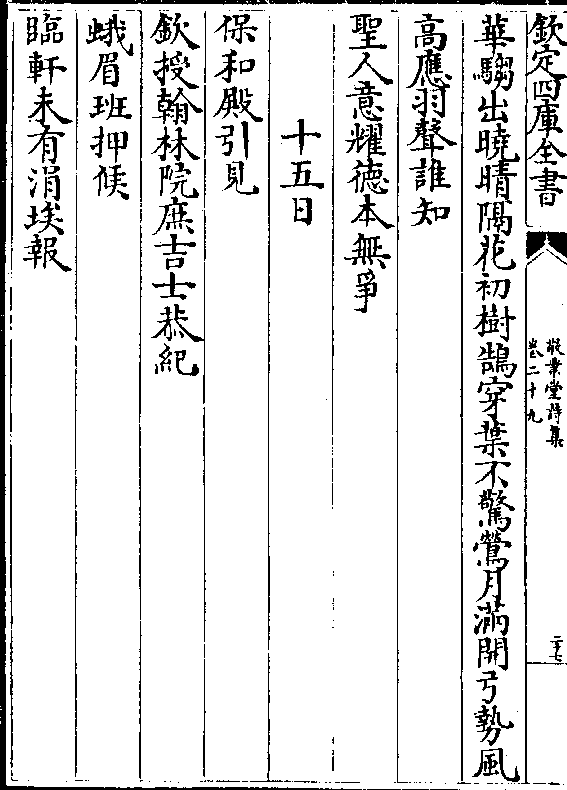 欽定四庫全書
敬業堂詩集
卷二十九
二十七
華騶出曉晴隔花初樹鵠穿葉不驚鶯月滿開弓勢風
高應羽聲誰知
聖人意耀德本無爭
十五日
保和殿引見
欽授翰林院庶吉士恭紀
蛾眉班押候
臨軒未有涓埃報